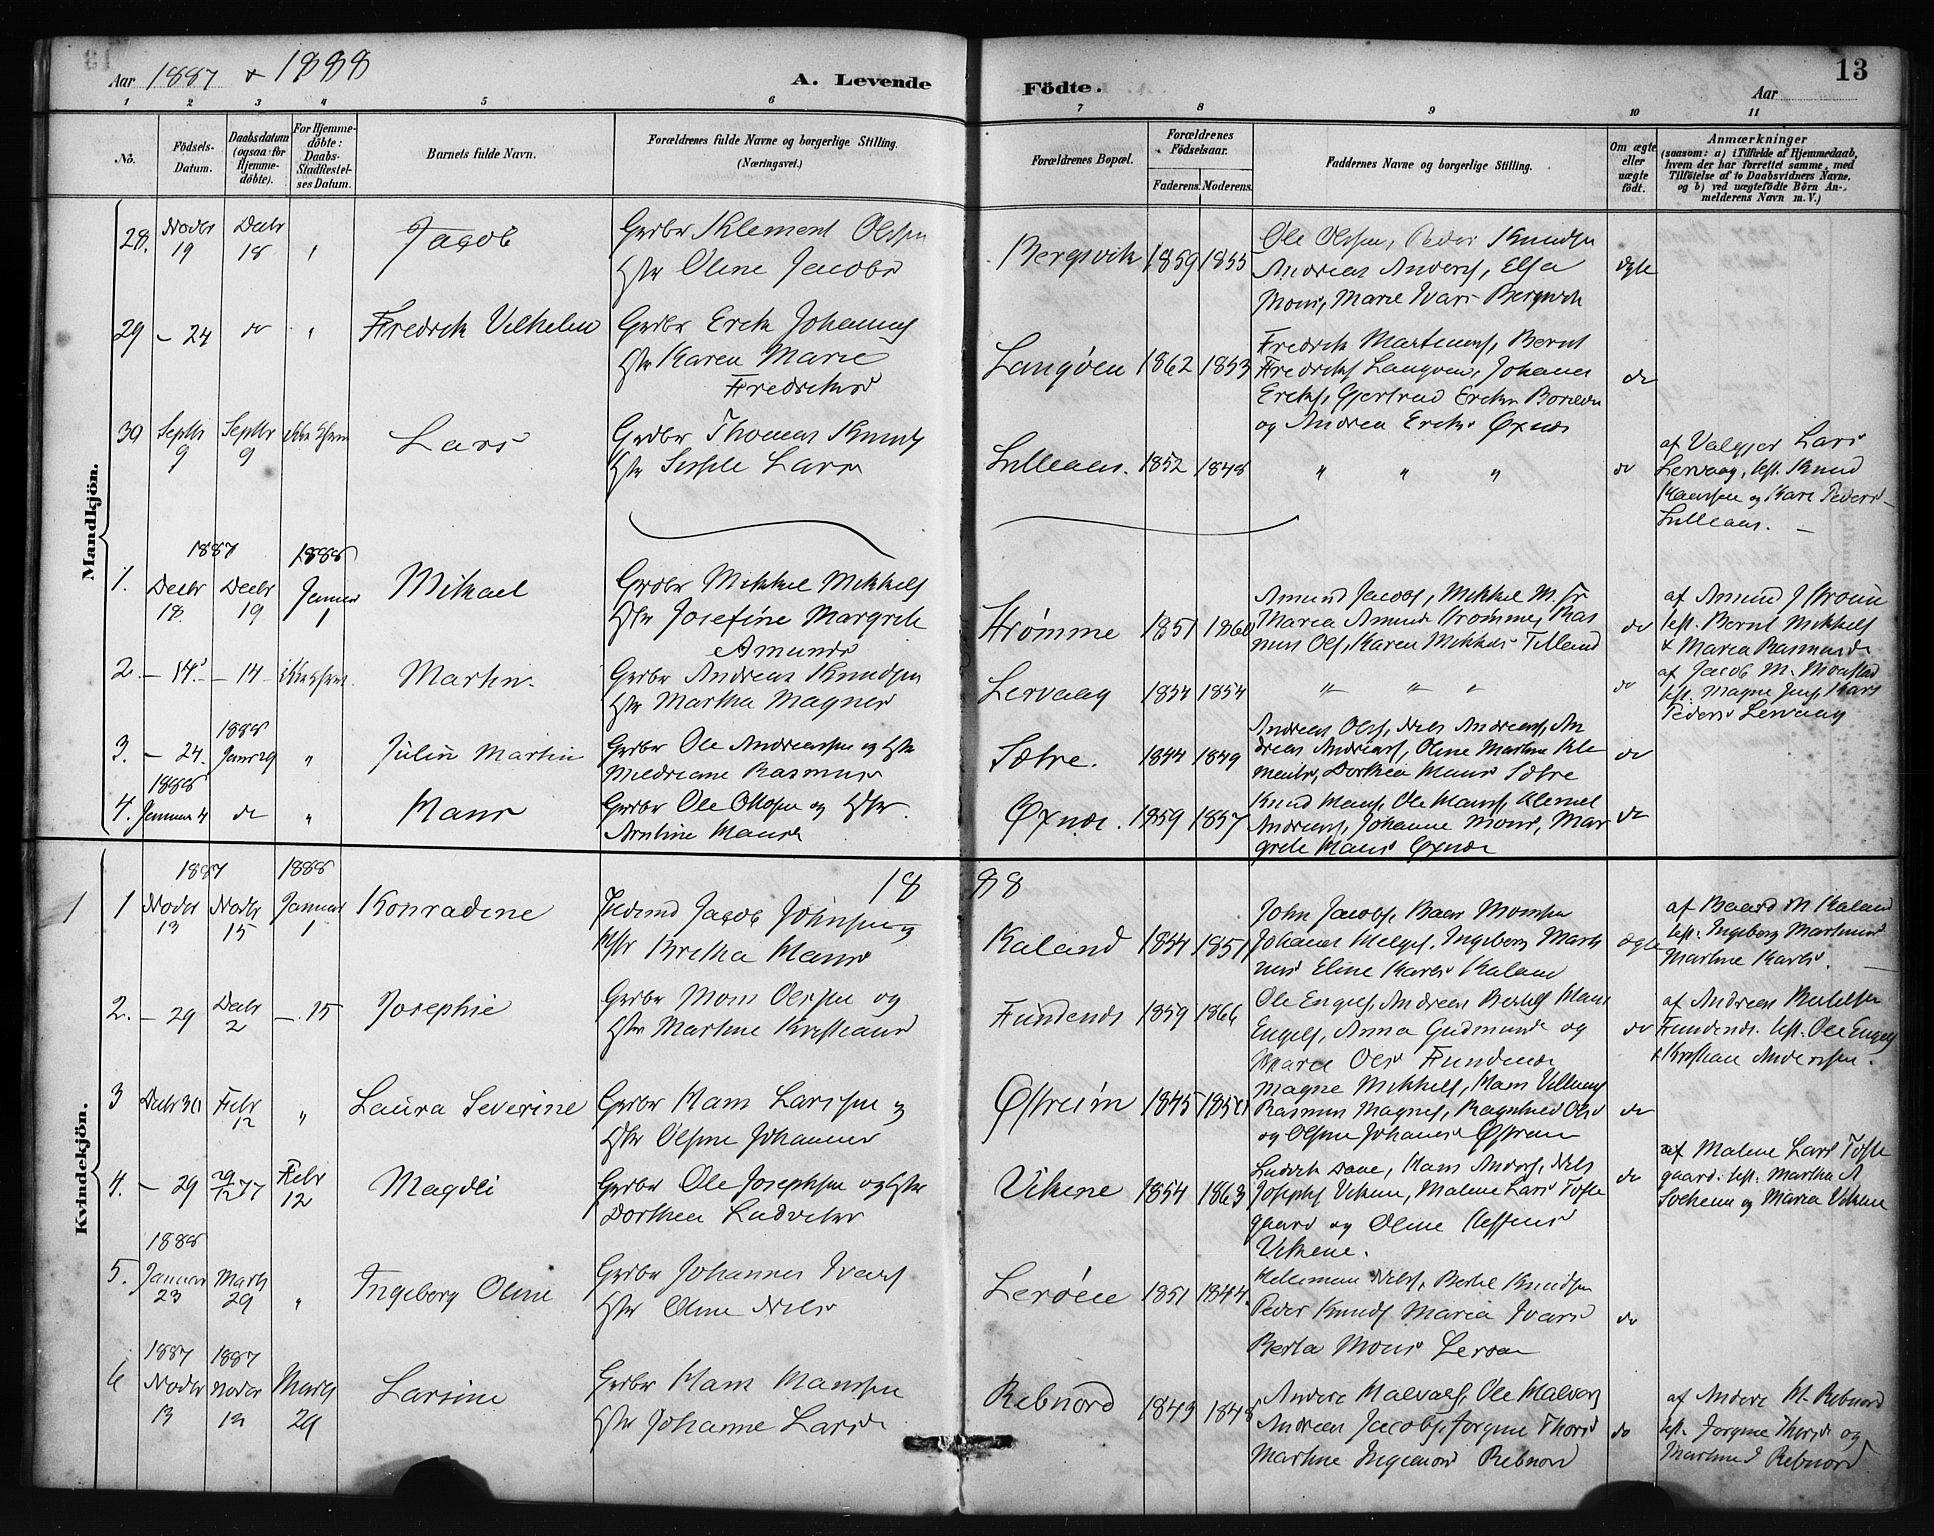 Aar 1887 & 1888
A. Levende Födte.
13
Aar
1 2 3 4 5 6 7 8 9 10 11
No.
Födsels-Datum.
Daabsdatum (ogsaa for Hjemmedöbte).
For Hjemmedöbte: Daabs-Stadfestelses Datum.
Barnets fulde Navn.
Forældrenes fulde Navne og borgerlige Stilling.
(Næringsvei.)
Forældrenes Bopæl.
Forældrenes Födselsaar.
Faderens. Moderens.
Faddernes Navne og borgerlige Stilling.
Om ægte eller uægte födt.
Anmærkninger
(saasom: a) i Tilfælde af Hjemmedaab,
hvem der har forrettet samme, med
Tilföielse af to Daabsvidners Navne,
og b) ved uægtefödte Börn An-
melderens Navn m. V.)
Mandkjön.
28. Novbr 19 Decbr 18 " Jacob
Grdbr Klement Olsen
Hstr Oline Jacobs
Bergsvik 1859 1855
Ole Olsen, Peder Knudsen
Andreas Anders, Elsa
Mons, Marie Ivars Bergsvik
ægte
29 - 24 do " Fredrik Vilhelm
Grdbr Erik Johannes
Hstr Karen Marie
Fredriks
Langøen 1862 1853
Fredrik Martinus, Bernt
Fredriks Langøen, Johanes
Eriks, Gjertrud Eriks
og Andrea Eriks Øxnæs
do
30 Septbr 9 Septbr 9 Lars
Grdbr Thomas Knuds
Hstr Sissele Lars
Lilleaas. 1852 1848
" " "
do
af Valgjer Lars
Lervaag, test. Knud
Hansen og Kari Peders
Lilleaas. -
1887 1888
1. Decbr 18 Decbr 19 Januar 1 Mikael
Grdbr Mikkel Mikkels
Hstr Josefine Margrete
Amunds
Strømme 1851 1860
Amund Jacobs, Mikkel M. Sr
Maria Amunds Strømme, Ras
mus Ols, Karen Mikkels
do
af Amund J Strøm
test. Bernt Mikkels
& Maria Rasmusd
2 - 14 - 14 Martin.
Grdbr Andreas Knudsen
Hstr Martha Magnes
Lervaag 1854 1854
" " "
do
af Jacob M. Monstad
test. Magne Jens, Kari
Peders Lervaag
1888
3. - 24. Janr 29 " Julin Martin
Grdbr Ole Andreassen og Hstr
Rasmus
Sætre. 1844 1849
Andreas Ols, Nils Andreas, An
dreas Andreas, Oline Martine Kle
ments, Dorthea Hans Sætre
do
1888
4. Januar 4 do " Hans
Grdbr Ole Olsen og Hstr.
Hans
Øxnæs. 1859 1857
Knud Hans, Ole Hans, Klemet
Andreas, Johanne Mons, Mar
grete Hans Øxnæs
do
Kvindekjön.
1887 1888
18 88
1 1 Novbr 13 Novbr 15 Januar 1 Konradine
Jacob Johnsen og
Hstr Britha Hans
Kaland 1854 1851
John Jacobs, Baar Monsen
Johanes Helges, Ingeborg Marti
nus Eline Karls Kaland
ægte
af Baard M Kaland
test. Ingeborg Martinus
Martine Karls.
2. - 29 Decbr 2 - 15 Josephie
Grdbr Mons Olsen og
Hstr Martine Kristians
Fundenæs 1859 1866
Ole Engels, Andreas Bertels Hans
Engels, Anna Gudmunds og
Marie Ols Fundenæs
do
af Andreas Bertelsen
Fundenæs. test. Ole Engels
& Kristian Andersen.
3 Decbr 30 Febr 12 " Laura Severine
Grdbr Hans Larsen og
Hstr Olsine Johannes
Østreim 1845 1850
Magne Mikkels, Hans Villums
Rasmus Magnes, Ragnhild Ols
og Olsine Johanes Østreim
do
4. - 29 29/12 77 Febr 12 Magdli
Grdbr Ole Josephsen og Hstr
Dorthea Ludviks
Vikene 1854 1863
Ludvik Dane, Hans Anders, Nils
Josephs Vikene, Malene Lars Tofte
gaard og Oline Steffens
Vikene.
do
af Malene Lars Tofte
gaard. test. Martha A
og Maria Vikene
1888
5. Januar 23 Marts 29 " Ingeborg Oline
Grdbr Johannes Ivars
Hstr Oline Nils
Lerøen 1851 1844.
Nils, Bertel Knudsen
Peder Knuds Maria Ivars
Berta Mons Lerøen
do
1887 1887
6 Novbr 13 Novbr 13 Marts 29 Larsine
Grdbr Hans Hansen
Hstr Johanne Lars
Rebnord 1843 1848
Anders Halvors, Ole Halvors
Andreas Jacobs, Jorgine Thors
Martine Ingemors Rebnord
do
af Anders H. Rebnord
test. Jorgine Thors og
Martine I Rebnord